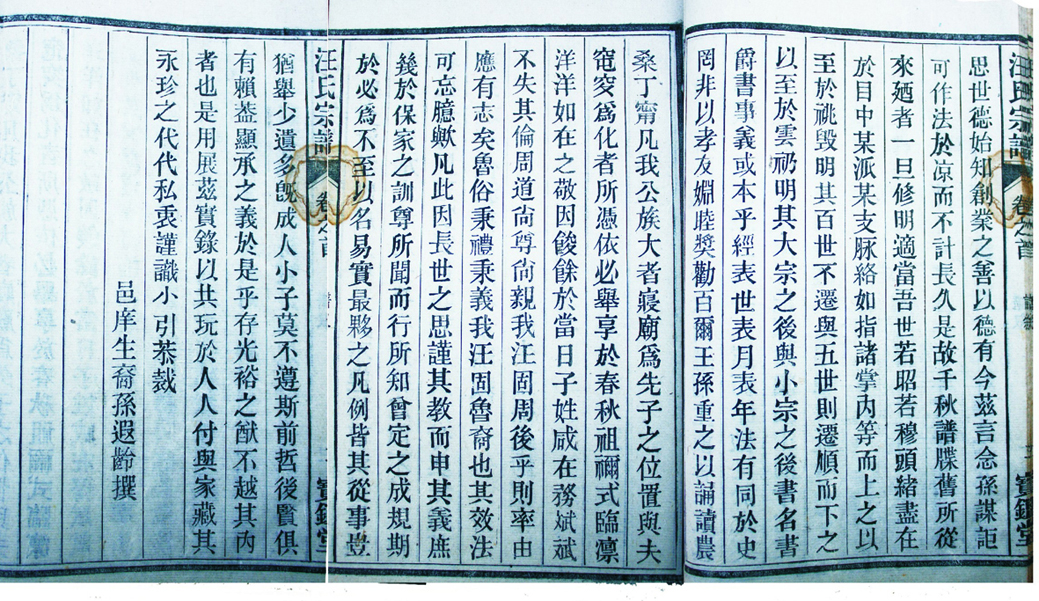 汪氏宗譜
卷之首
寶鑑堂
思世德始知創業之善以德有今茲言念孫謀詎
可作法於凉而不計長久是故千秋譜牒舊所從
來廼者一旦修明適當吾世若昭若穆頭緒盡在
於目中某派某支脉絡如指諸掌內等而上之以
至於祧毀明其百世不遷與五世則遷順而下之
以至於雲礽明其大宗之後與小宗之後書名書
爵書事義或本乎經表世表月表年法有同於史
罔非以孝友婣睦獎勸百爾王孫重之以誦讀農
桑丁甯凡我公族大者寢廟爲先子之位置與夫
窀穸爲化者所憑依必舉享於春秋祖禰式臨凛
洋洋如在之敬因餕餘於當日子姓咸在務斌斌
不失其倫周道尙尊尙親我汪固周後乎則率由
應有志矣魯俗秉禮秉義我汪固魯裔也其效法
可忘臆歟凡此因長世之思謹其教而申其義庶
幾於保家之訓尊所聞而行所知曾定之成規期
於必爲不至以名易實最夥之凡例皆其從事豊
汪氏宗譜
卷之首
寶鑑堂
猶舉少遺多旣成人小子莫不遵斯前哲後賢俱
有賴葢顯承之義於是乎存光裕之猷不越其內
者也是用展茲實錄以共玩於人人付與家藏其
永珍之代代私衷謹識小引恭裁
邑庠生裔孫遐齡撰